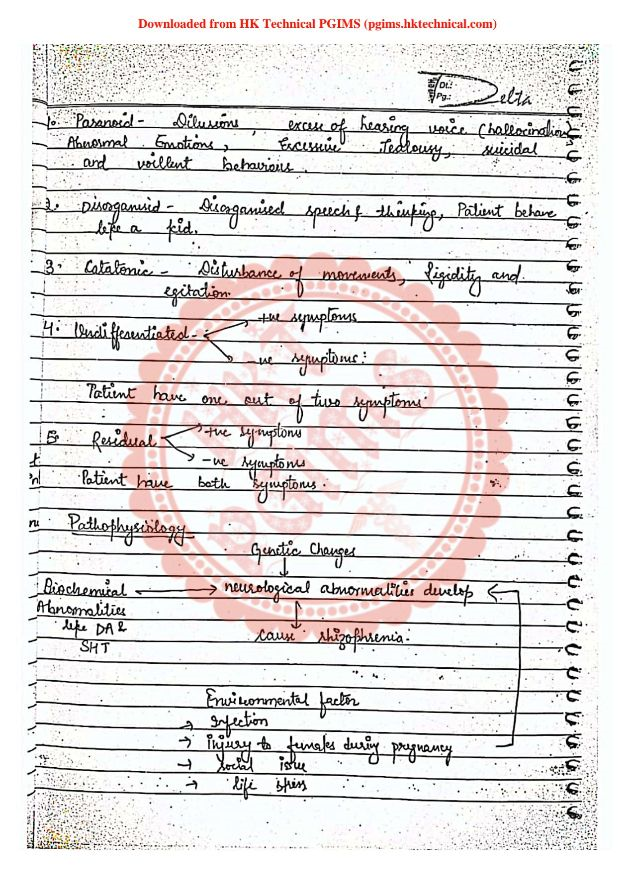 Downloaded from HK Technical PGIMS (pgims.hktechnical.com)
Dt.:
Pg.:
Delta
1. Paranoid - Dilusions, excess of hearing voice (hallocination)
Abnormal Emotions, Excessive Jealousy, suicidal
and voillent behaviours.
2. Disorganised - Disorganised speech & thinking, Patient behave
like a kid.
3. Catatonic - Disturbance of movements, rigidity and
egitation.
4. Undifferentiated - +ve symptoms
-ve symptoms:
Patient have one out of two symptoms.
5. Residual +ve symptoms
-ve symptoms
Patient have both symptoms.
Pathophysiology
Genetic Changes
Biochemical ↔ neurological abnormalities develop
Abnormalities
like DA &
5HT
cause shizophrenia.
Environmental factor
→ Infection
→ injury to females during pregnancy
→ social issue
→ life stress